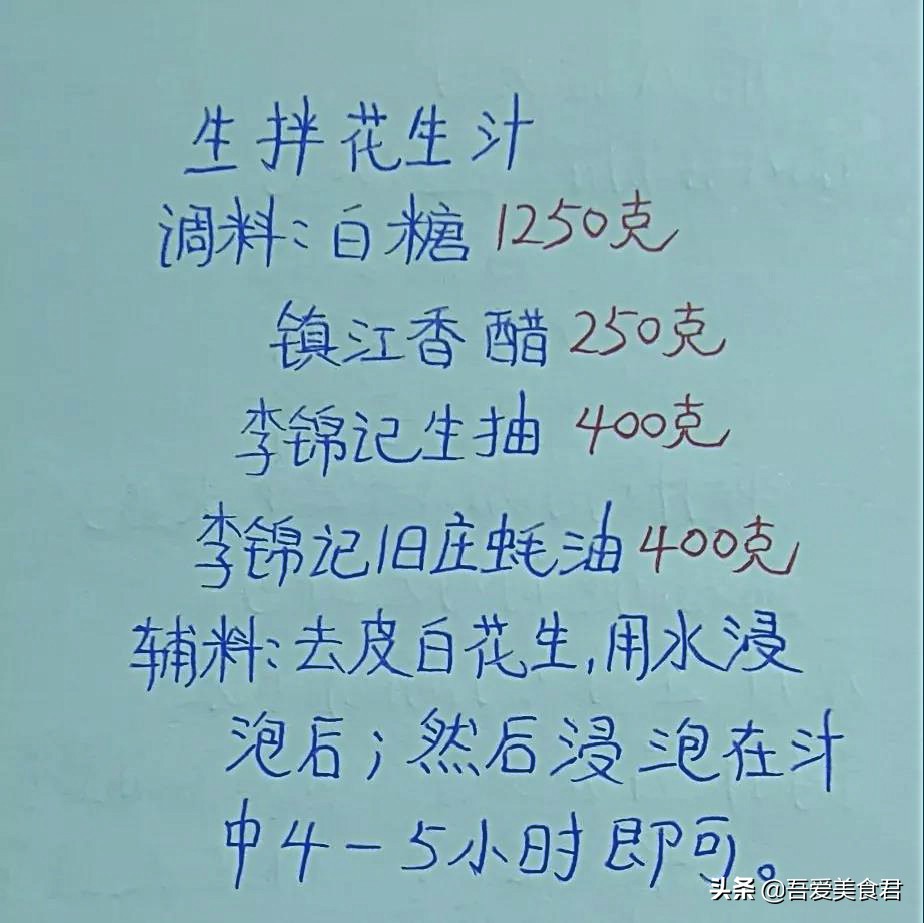 生拌花生汁
调料：白糖1250克
镇江香醋250克
李锦记生抽400克
李锦记旧庄蚝油400克
辅料：去皮白花生,用水浸
泡后；然后浸泡在汁
中4-5小时即可。
头条 @吾爱美食君